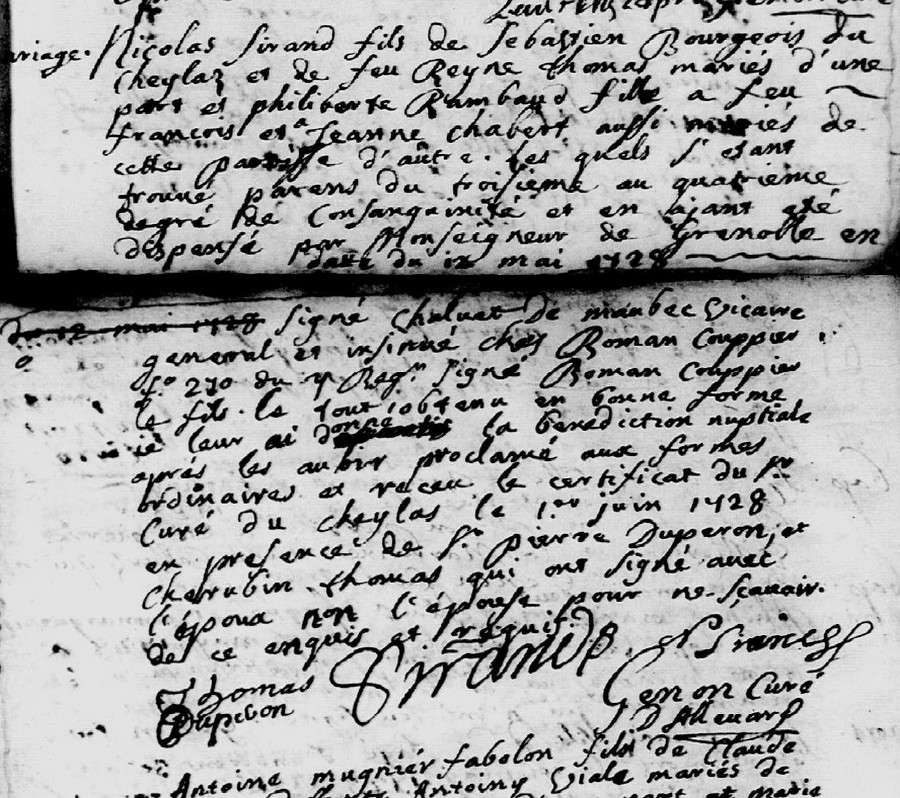 mariage. Nicolas Sirand fils de Sebastien Bourgeois du
Cheylaz et de feu Reyne Thomas mariés d'une
part et philiberte Rambaud fille a feu
françois et a Jeanne Chabert aussi mariés de
cette parroisse d'autre. les quels s'etant
trouvé parens du troisieme au quatrieme
degré de Consanguinité et en ajant eté
dispensé par Monseigneur de Grenoble en
datte du 12 mai 1728
du 12 mai 1728 signé Chaluet de maubec Vicaire
general et insinué chés Roman Couppier
fo 270 du Regre signé Roman Couppier
le fils. le tout obtenu en bonne forme
ie leur ai donné la benediction nuptiale
aprés les auoir proclamé aux formes
ordinaires et receu le certificat du sr
Curé du Cheylas le 1er juin 1728
en presence de Sr pierre Duperon, et
Cherubin Thomas qui ont signé avec
l'époux non l'épouse pour ne sçavoir.
de ce enquis et requis.
Thomas Sirand
Duperon Genon Curé
D'Allevard
Antoine mugniér fabolon fils de Claude
Antoiny Viale mariés de